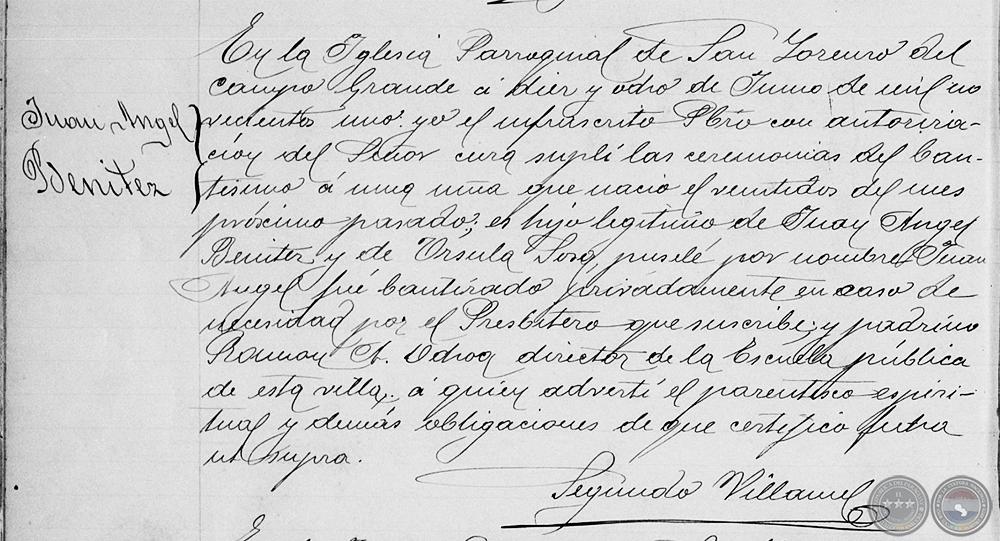 Juan Angel
Benitez
En la Iglesia Parroquial de San Lorenzo del
campo Grande á diez y ocho de Junio de mil no
vecientos uno: yo el infrascrito Pbro con autoriza-
ción del Señor cura suplí las ceremonias del bau-
tismo á una niña que nacio el veintidos del mes
próximo pasado; es hijo legitimo de Juan Angel
Benitez y de Ursula Sosa, puselé por nombre Juan
Angel fué bautizado privadamente en caso de
necesidad por el Presbitero que suscribe; y padrino
Ramon A. director de la Escuela pública
de esta villa, á quien advertí el parentesco espiri-
tual y demás obligaciones de que certifico
ut supra.
Segundo Villamel